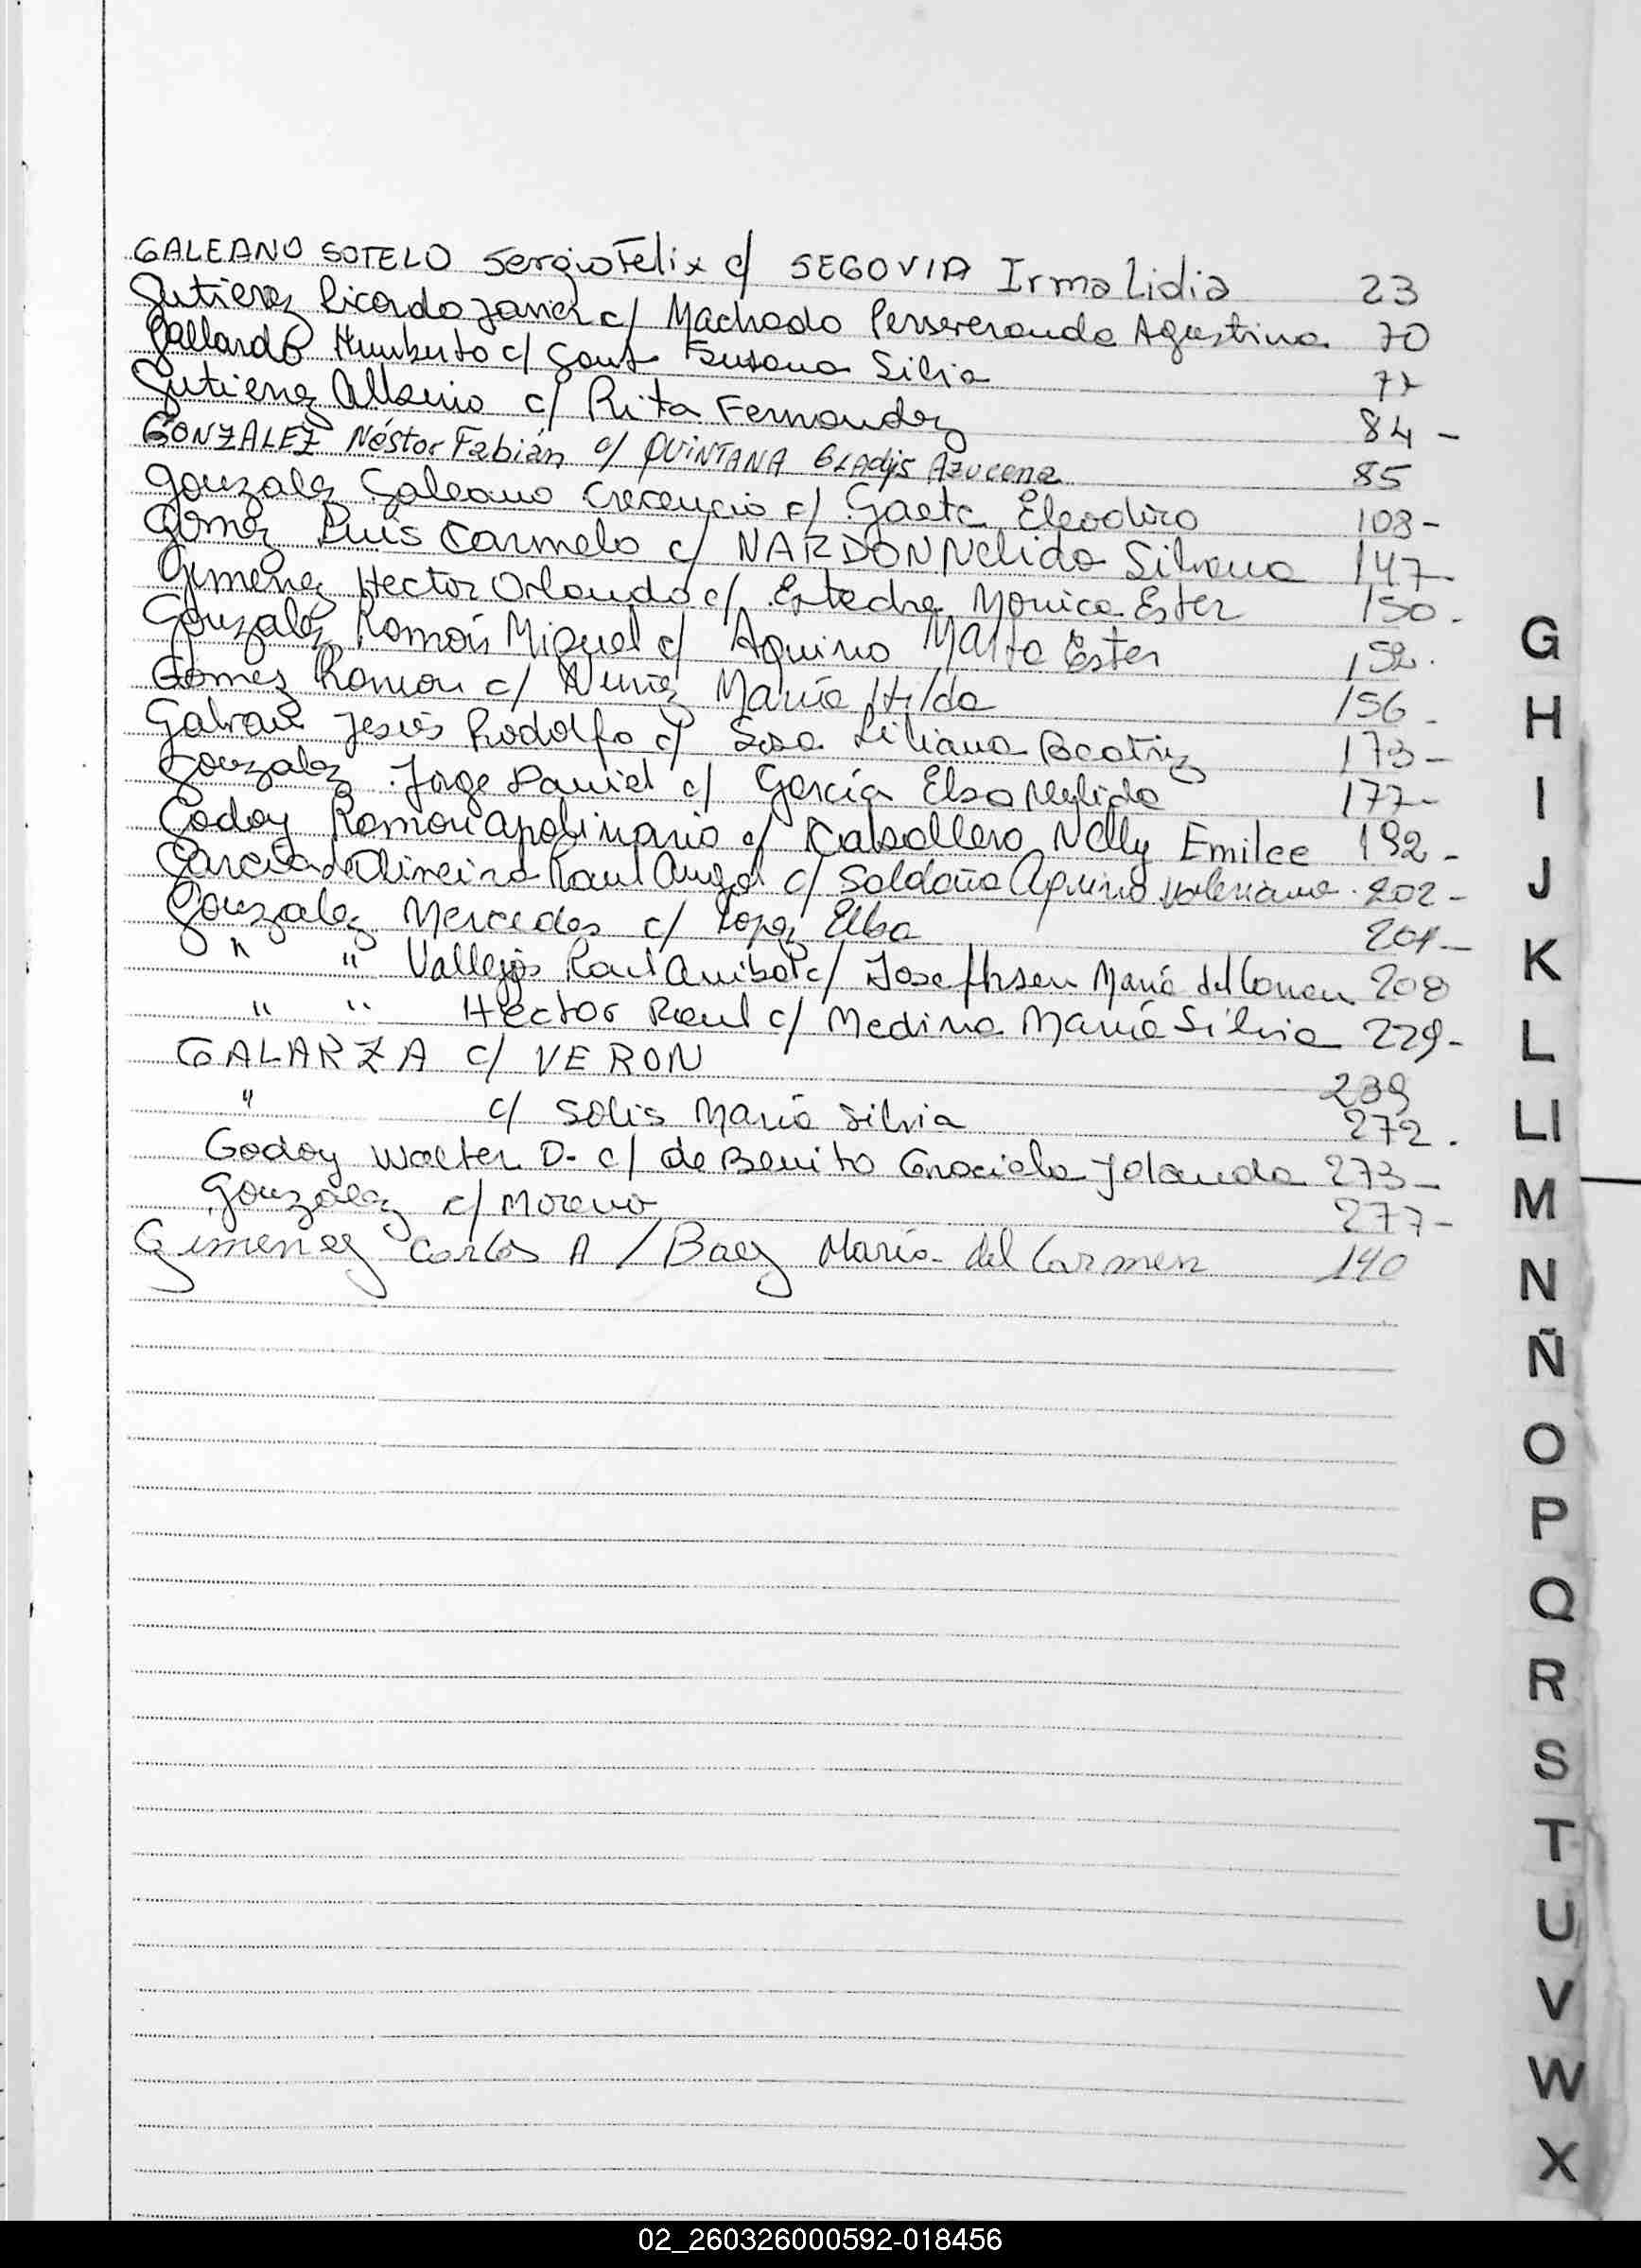 GALEANO SOTELO Sergio Felix c/ SEGOVIA Irma Lidia 23
Gutierrez Ricardo Javier c/ Machado Perseveranda Agustina 70
Gallardo Humberto c/ Susana Silia 77
Gutierrez c/ Rita Fernandez 84 -
GONZALEZ Néstor Fabián c/ QUINTANA Gladys Azucena 85
Gonzalez Galeano Crecencio c/ Gaeta Eleodora 108 -
Gomez Luis Carmelo c/ NARDON Nelida Silvana 147 -
Gimenez Hector Orlando c/ Monica Ester 150 .
Gonzalez Ramón Miguel c/ Aquino Marta Ester 152 .
Gomez Ramon c/ Nuñez María Hilda 156 -
Galvan Jesús Rodolfo c/ Sosa Liliana Beatriz 173 -
Gonzalez Jorge Daniel c/ García Elsa Nelida 177 -
Godoy Ramon Apolinario c/ Caballero Nelly Emilce 192 -
Garcia de Oliveira Raul Angel c/ Saldaña Aquino Valeriana . 202 -
Gonzalez Mercedes c/ Lopez Elba 201 -
" " Vallejos Raul Anibal c/ Josefhsen María del Carmen 208
" " Hector Raul c/ Medina María Silvia 229 -
GALARZA c/ VERON 239
" c/ Solis María Silvia 272 .
Godoy Walter D. c/ de Benito Graciela Yolanda 273 -
Gonzalez c/ Moreno 277 -
Gimenez Carlos A / Baez María del Carmen 140
G
H
I
J
K
L
Ll
M
N
Ñ
O
P
Q
R
S
T
U
V
W
X
02_260326000592-018456